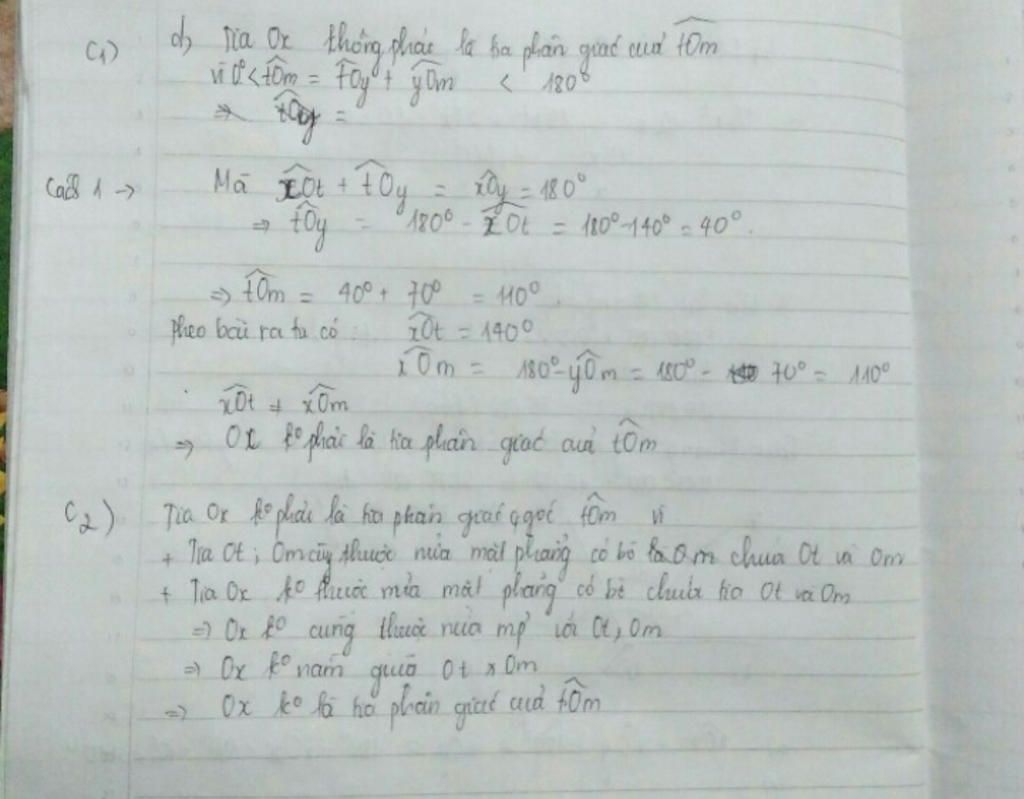 C1) d) Tia Ox không phải là tia phân giác của tOm
vì 0° < tOm = tOy + yOm < 180°
⇒ tOy =
Cách 1 → Mà xOt + tOy = xOy = 180°
⇒ tOy = 180° - xOt = 180° - 140° = 40°.
⇒ tOm = 40° + 70° = 110°.
Theo bài ra ta có: xOt = 140°
xOm = 180° - yOm = 180° - 70° = 110°
xOt ≠ xOm
⇒ Ox ko phải là tia phân giác của tOm
C2) Tia Ox ko phải là tia phân giác góc tOm vì
+ Tia Ot; Om cùng thuộc nửa mặt phẳng có bờ là Om chứa Ot và Om
+ Tia Ox ko thuộc nửa mặt phẳng có bờ chứa tia Ot và Om
⇒ Ox ko cùng thuộc nửa mp với Ot, Om
⇒ Ox ko nằm giữa Ot Om
⇒ Ox ko là tia phân giác của tOm